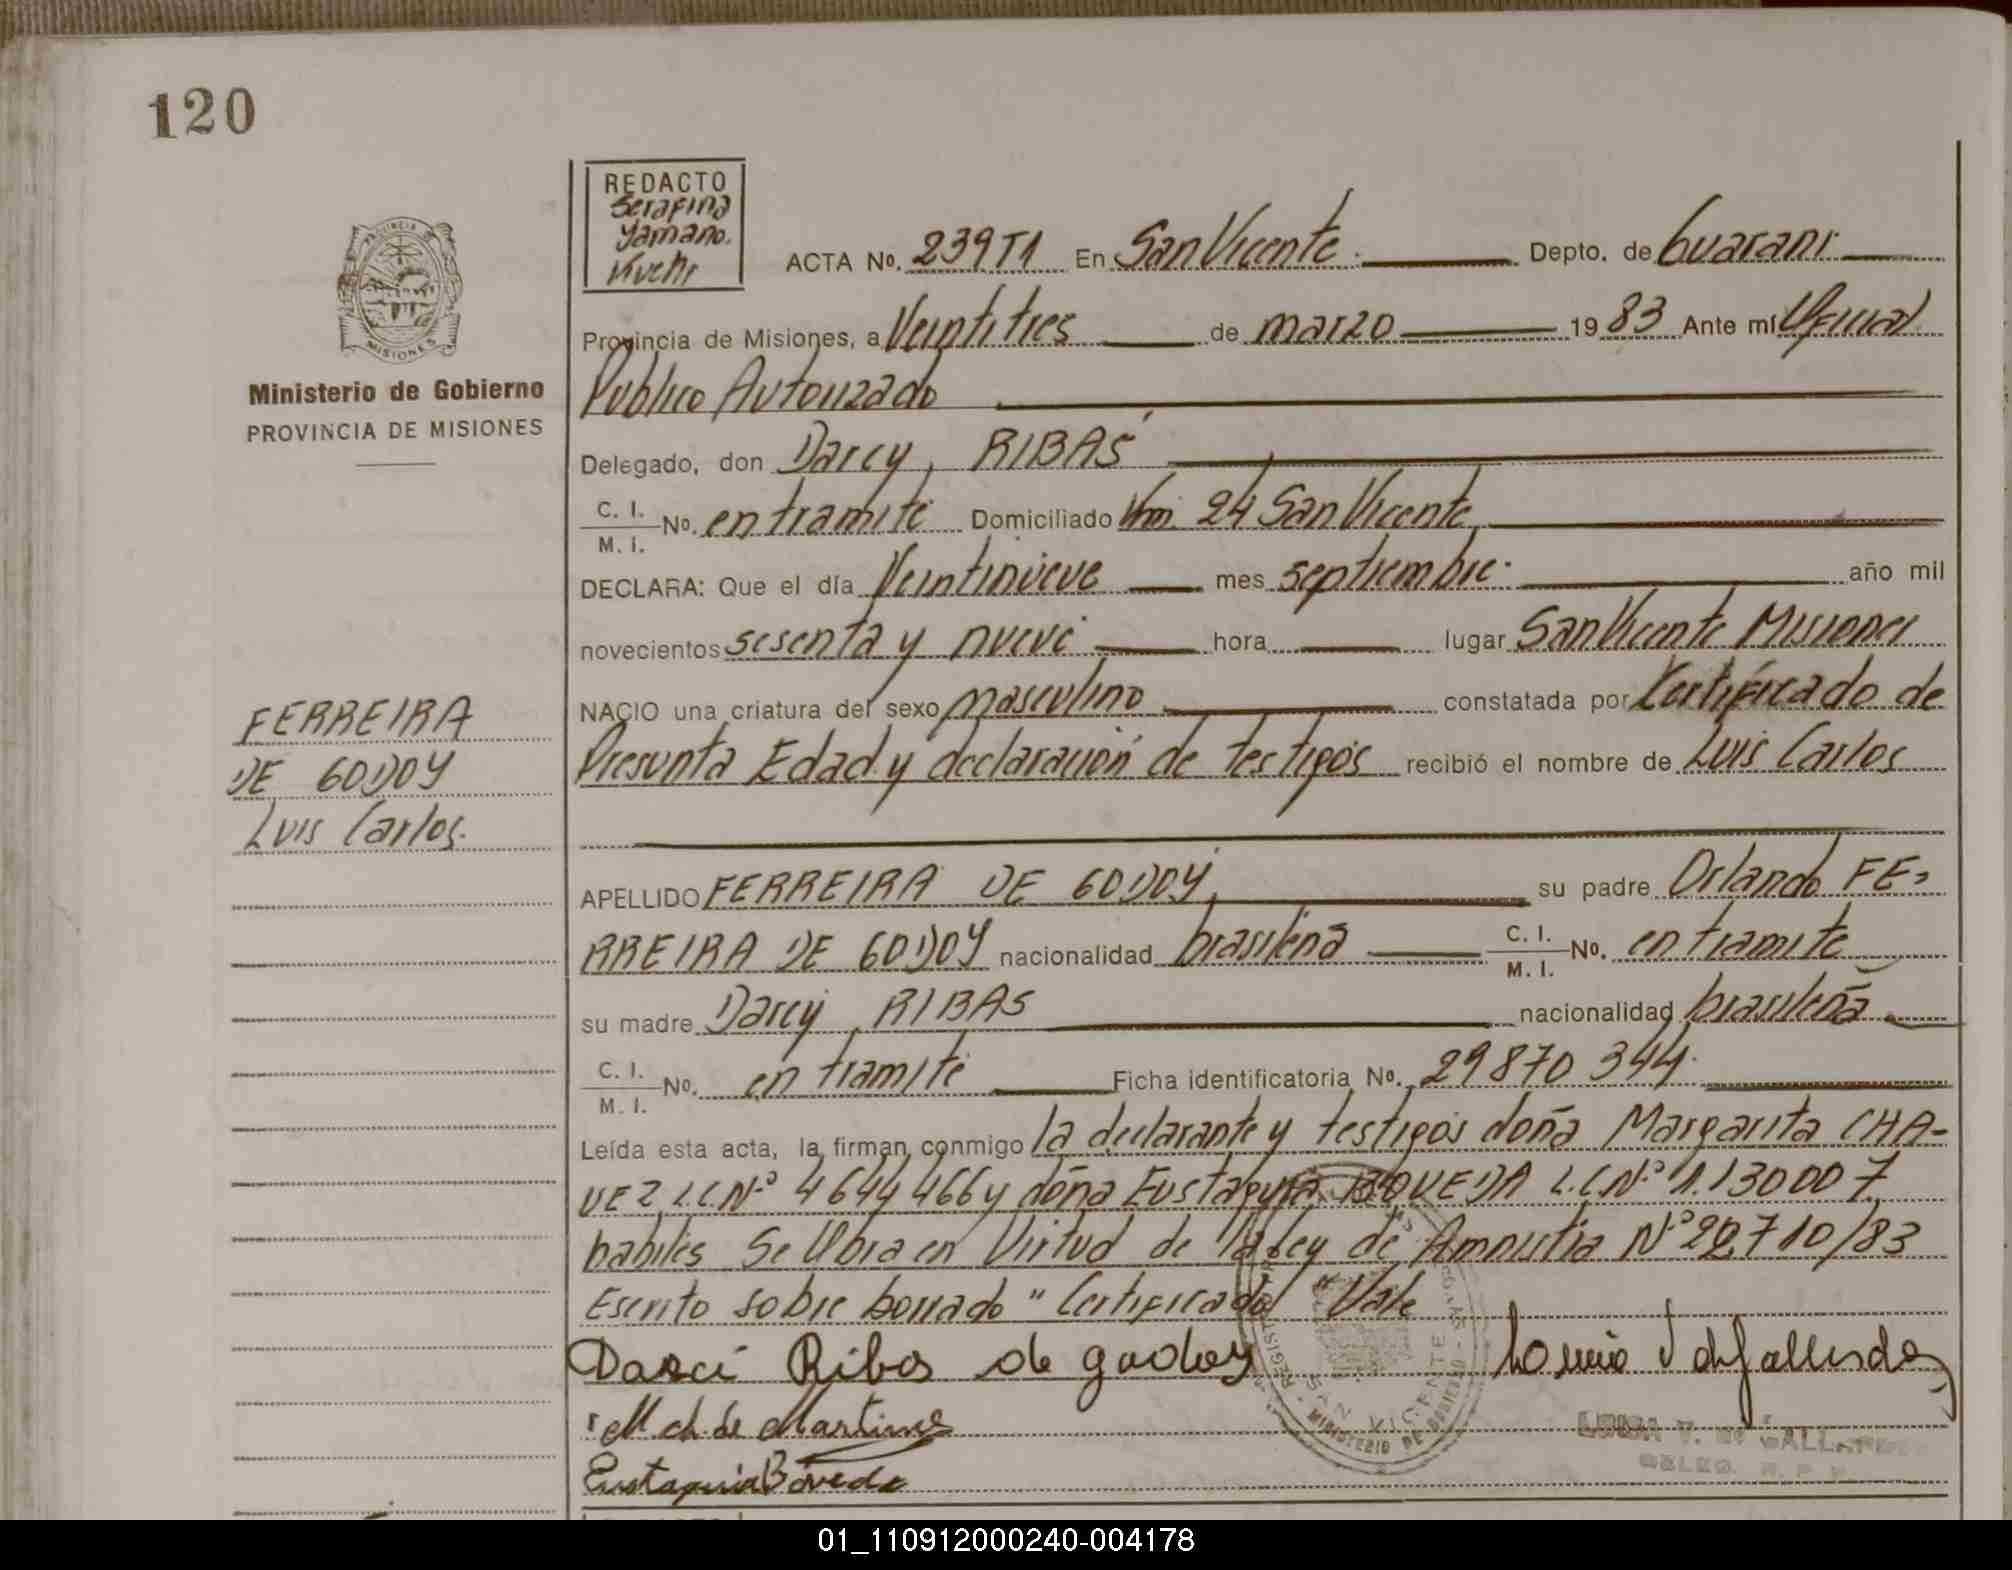 120
REDACTO
Serafina
Yamano.
PROVINCIA DE
MISIONES
Ministerio de Gobierno
PROVINCIA DE MISIONES
ACTA No. 239T1 En San Vicente Depto. de Guarani
Provincia de Misiones, a Veintitres de marzo 1983 Ante mí Oficial
Publico Autorizado
Delegado, don Darcy, RIBAS
C. I. / M. I. No. en tramite Domiciliado Km 24 San Vicente
DECLARA: Que el día Veintinueve mes septiembre año mil
novecientos sesenta y nueve hora lugar San Vicente Misiones
NACIO una criatura del sexo masculino constatada por Certificado de
Presunta Edad y declaración de testigos recibió el nombre de Luis Carlos
FERREIRA
DE GODOY
Luis Carlos.
APELLIDO FERREIRA DE GODOY, su padre Orlando FE-
RREIRA DE GODOY nacionalidad brasileña C. I. / M. I. No. en tramite
su madre Darcy, RIBAS nacionalidad brasileña
C. I. / M. I. No. en tramite Ficha identificatoria No. 29870344
Leída esta acta, la firman conmigo la declarante y testigos doña Margarita CHA-
VEZ L.C.Nº 4644466 y doña Eustaquia BOVEDA L.C.Nº 1.130007
habiles Se Obra en Virtud de la Ley de Amnistia Nº 22.710/83
Escrito sobre borrado "Certificado" Vale
Darci Ribas de godoy
M ch. de Martinez
Eustaquia Boveda
SAN VICENTE
MINISTERIO DE GOBIERNO
01_110912000240-004178